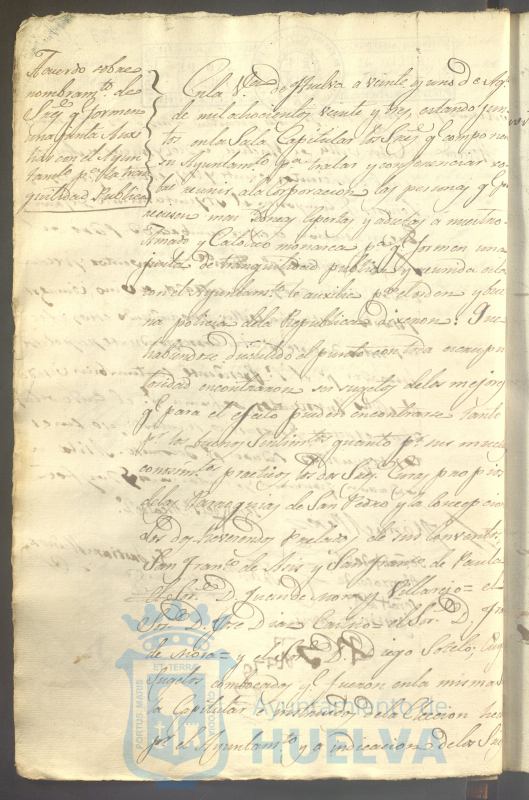 Acuerdo sobre
nombramto. de
Sres. q. formen
una Junta Auxi
liar con el Ayun
tamto. pa. la tran
quilidad Publica
En la Va. de Huelva a veinte y uno de Ago.
de mil ochocientos veinte y tres, estando jun
tos en la Sala Capitular los Sres. q. componen
su Ayuntamto. pa. tratar y conferenciar so
bre reunir a la Corporacion las personas q.
mas idoneas expertas y adictas a nuestro
Amado y Catolico monarca pa. q. formen una
junta de tranquilidad publica y reunida esta
con el Ayuntamto. le auxilie pa. el orden y bue
na policia de la Republica Dixeron: Que
habiendose discutido el punto con toda escrupu
losidad encontraron ser sugetos de los mejores
q. para el efecto pueden encontrarse tanto
pr. los buenos sentimtos. quanto pr. sus muchos
conocimtos. practicos los dos Sres. Curas propios
de las Parroquias de San Pedro y la Concepcion
los dos Reverendos Prelados de sus conventos,
San Franco. de Asis y San Franco. de Paula
el Sor. D. Juan de Mora y Villarejo = el
Sor. D. Jose Diaz = el Sor. D.
de Mora = y el Sor. D. Diego Sotelo; cuyos
sugetos combocados q. fueron en la misma
Sala Capitular e instruidos de la eleccion hecha
pr. el Ayuntamto. y a indicacion de los Sres.
PORTUS MARIS
ET TERRAE
CUSTODIA
Ayuntamiento de
HUELVA